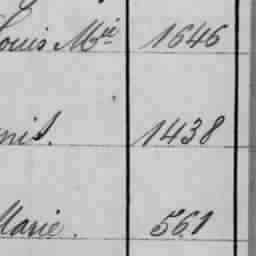 Louis Mie 1646
nis. 1438
Marie. 561